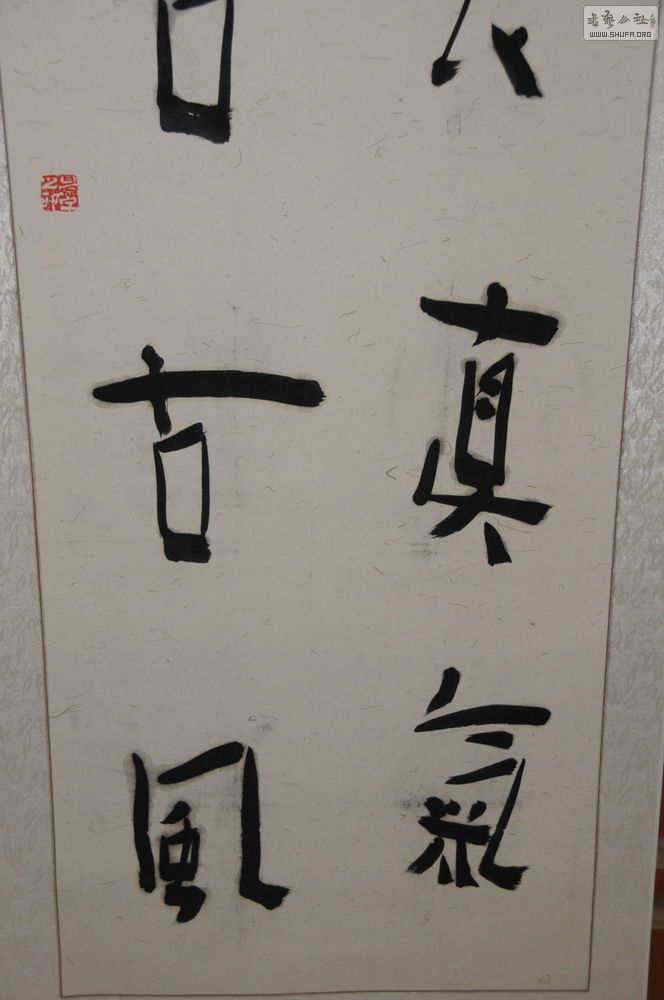 真氣
古風
书艺公社
WWW.SHUFA.ORG